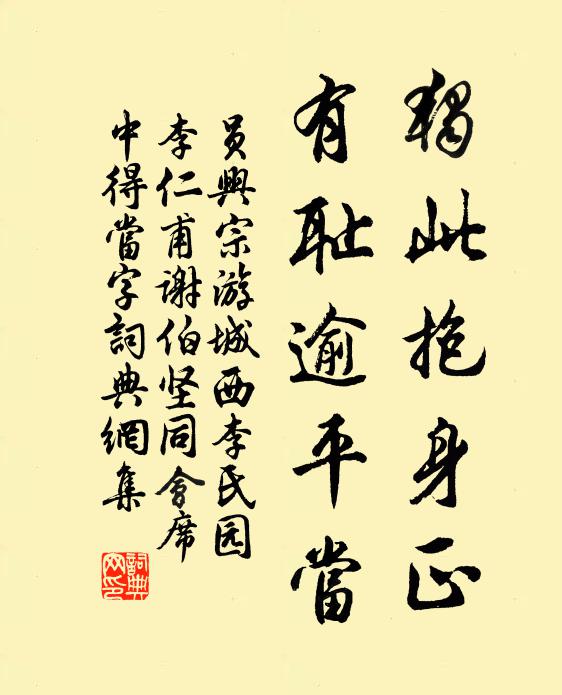 獨此抱身正
有耻逾平當
員興宗游城西李民园
李仁甫谢伯坚同會席
中得當字詞典網集
詞典网印